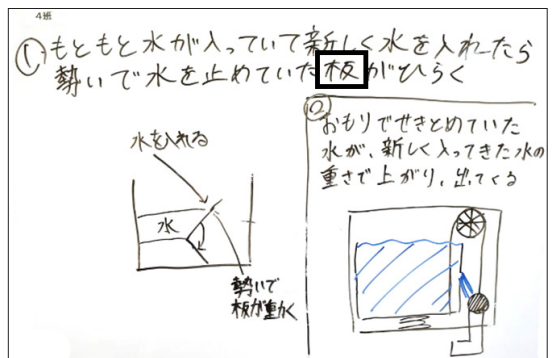 4班
① もともと水が入っていて新しく水を入れたら
勢いで水を止めていた板がひらく
水を入れる
水
勢いで
板が動く
②
おもりでせきとめていた
水が、新しく入ってきた水の
重さで上がり、出てくる